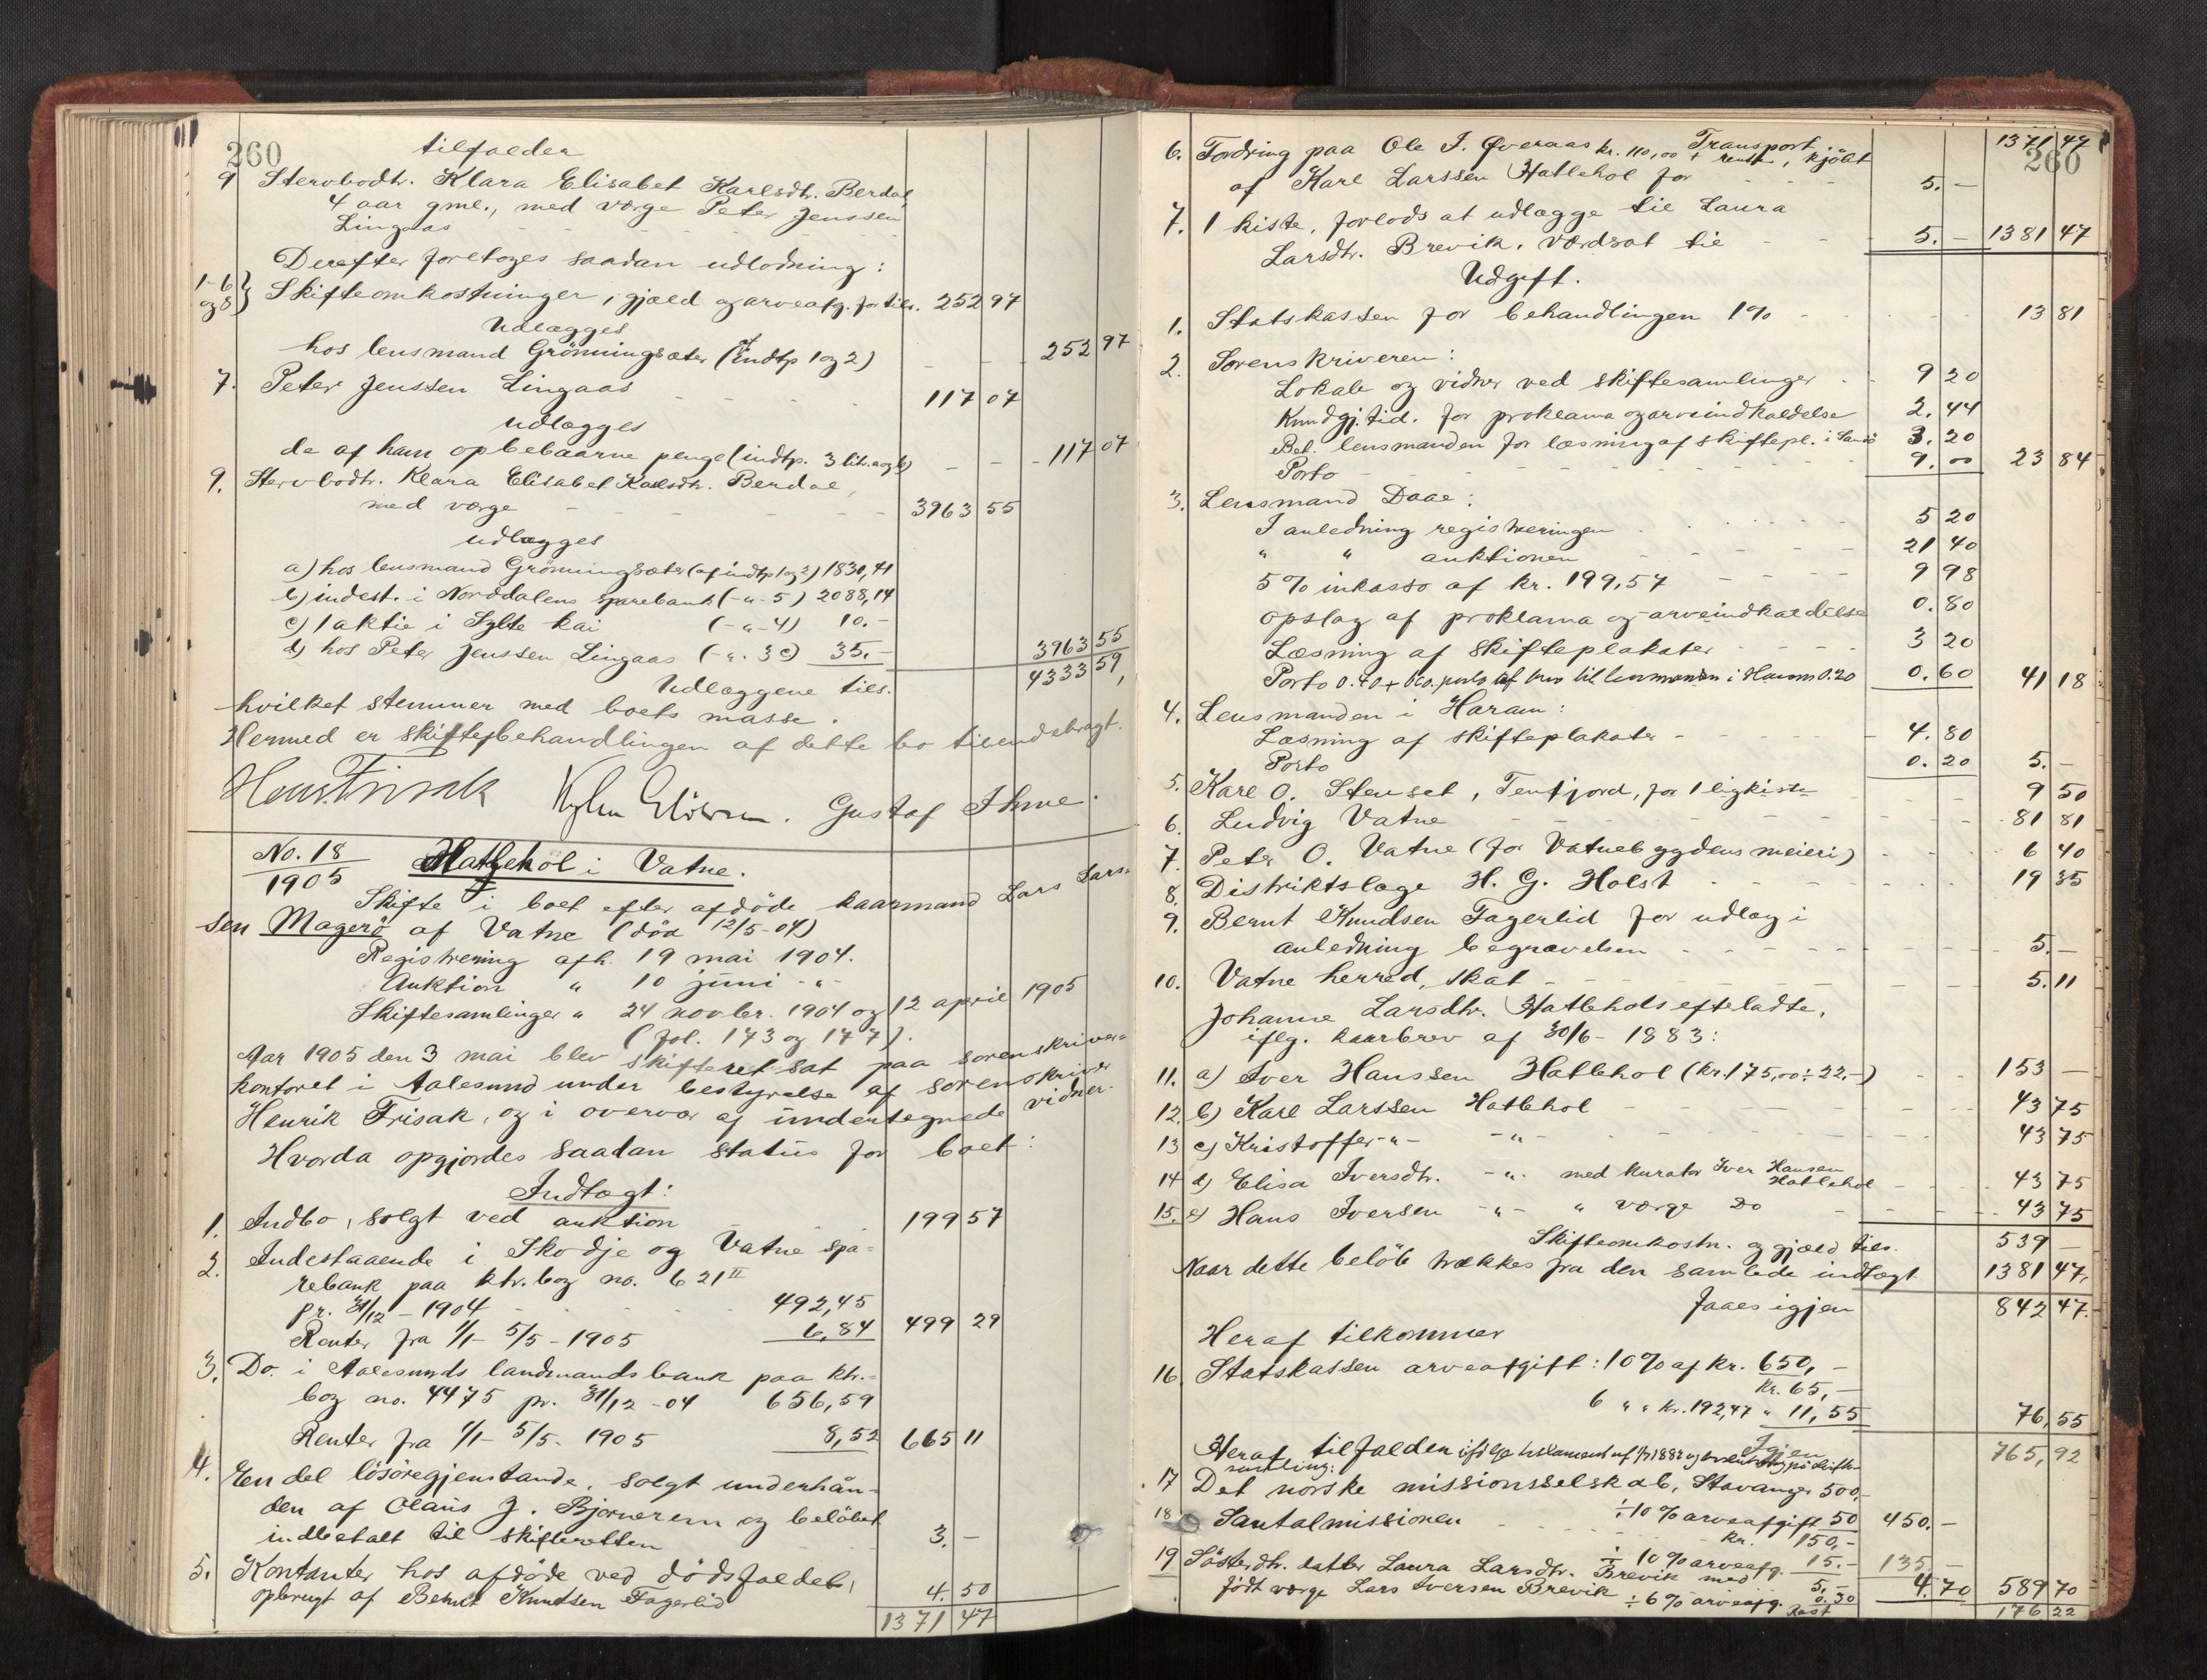 260
tilfalder
9 Stervbodtr. Klara Elisabet Karlsdtr. Berdal
4 aar gml., med værge Peter Jenssen
Lingaas
Derefter foretoges saadan udlodning:
1-6 og 8} Skifteomkostninger, gjæld og arveafg. for tils. 252 97
Udlægges
hos lensmand Grönningsæter (af indtp 1 og 2) 252 97
7. Peter Jenssen Lingaas 117 07
udlægges
de af ham opbebaarne penge (indtp. 3 litr. a og b) 117 07
9. Stervbodtr. Klara Elisabet Karlsdtr. Berdal,
med værge 3963 55
udlægges
a) hos lensmand Grönningsæter (af indtp 1 og 2) 1830,41
b) indest. i Norddalens sparebank (-"- 5) 2088,14
c) 1 aktie i Sylte kai (-"- 4) 10.-
d) hos Peter Jenssen Lingaas (-"- 3c) 35.- 3963 55
Udlæggene tils. 4333 59,
hvilket stemmer med boets masse.
Hermed er skiftebehandlingen af dette bo tilendebragt.
Henr. Frisak Gustaf Ihme.
No. 18
1905 Hatlehol i Vatne.
Skifte i boet efter afdöde kaarmand Lars Lars-
sen Magerö af Vatne (död 12/5-04)
Registrering afh. 19 mai 1904.
Auktion " 10 juni -"-
Skiftesamlinger " 24 novbr. 1904 og 12 april 1905
(fol. 173 og 177).
Aar 1905 den 3 mai blev skifteret sat paa sorenskriver-
kontoret i Aalesund under bestyrelse af sorenskriver
Henrik Frisak, og i overvær af undertegnede vidner.
Hvorda opgjordes saadan status for boet:
Indtægt:
1. Indbo, solgt ved auktion 199 57
2. Indestaaende i Skodje og Vatne spa-
rebank paa ktr.bog no. 621 II
pr. 31/12 - 1904 492,45
Renter fra 1/1 - 5/5 - 1905 6,84 499 29
3. Do. i Aalesunds landmandsbank paa ktr.-
bog no. 4475 pr. 31/12 -04 656,59
Renter fra 1/1 - 5/5 - 1905 8,52 665 11
4. En del lösöregjenstande, solgt underhån-
den af Olaus J. Bjørnerem og belöbet
indbetalt til skifteretten 3. -
5. Kontanter hos afdöde ved dödsfaldet,
opbrugt af Bernt Knutsen Fagerlid 4. 50
1371 47
260
Transport 1371 47
6. Fordring paa Ole J. Øveraas kr. 110,00 + renter, kjöbt
af Karl Larssen Hatlehol for 5. -
7. 1 kiste, forlods at udlægge til Laura
Larsdtr. Brevik, værdsat til 5. - 1381 47
Udgift.
1. Statskassen for behandlingen 1% 13 81
2. Sorenskriveren:
Lokale og vidner ved skiftesamlinger 9 20
Kundgj.tid. for proklama og arveindkaldelse 2. 44
Bet. lensmanden for læsning af skiftepl. i 3. 20
Porto 9. 00 23 84
3. Lensmand Daae:
I anledning registreringen 5 20
" " auktionen 21 40
5% inkasso af kr. 199,57 9 98
opslag af proklama og arveindkaldelse 0. 80
Læsning af skifteplakater 3 20
Porto 0.40 + til lensmanden i Haram 0.20 0. 60 41 18
4. Lensmanden i Haram:
Læsning af skifteplakater 4. 80
Porto 0. 20 5. -
5. Karl O. Stenset, Tenfjord, for 1 ligkiste 9 50
6. Ludvig Vatne 81 81
7. Peter O. Vatne (for Vatnebygdens meieri) 6 40
8. Distriktslæge H. G. Holst 19 35
9. Bernt Knudsen Fagerlid for udlæg i
anledning begravelsen 5. -
10. Vatne herred, skat 5. 11
Johanne Larsdtr. Hatlehols efterladte,
iflg. kaarbrev af 30/6 - 1883:
11. a) Iver Hanssen Hatlehol (kr. 175,00 ÷ 22.-) 153 -
12. b) Karl Larssen Hatlehol 43 75
13 c) Kristoffer -"- -"- 43 75
14 d) Elisa Iversdtr. -"- med kurator Iver Hansen Hatlehol 43 75
15. e) Hans Iversen -"- " værge Do 43 75
Skifteomkostn. og gjæld tils. 539 -
Naar dette belöb trækkes fra den samlede indtægt 1381 47,
faaes igjen 842 47.
Heraf tilkommer
16. Statskassen arveafgift: 10% af kr. 650,-
kr. 65,-
6 " " kr. 192,47 " 11,55 76,55
Igjen 765,92
Heraf tilfalder ifölge testament af
samling:
17 Det norske missionsselskab, Stavanger 500,-
÷ 10% arveafgift 50 450.-
18 Santalmissionen kr. 150,-
÷ 10% arveafg. 15.- 135 -
19 Sösterdtr. datter Laura Larsdtr. Brevik med 5. -
födt værge Lars Iversen Brevik ÷ 6% arveafg. 0.30 4. 70 589 70
Rest 176 22